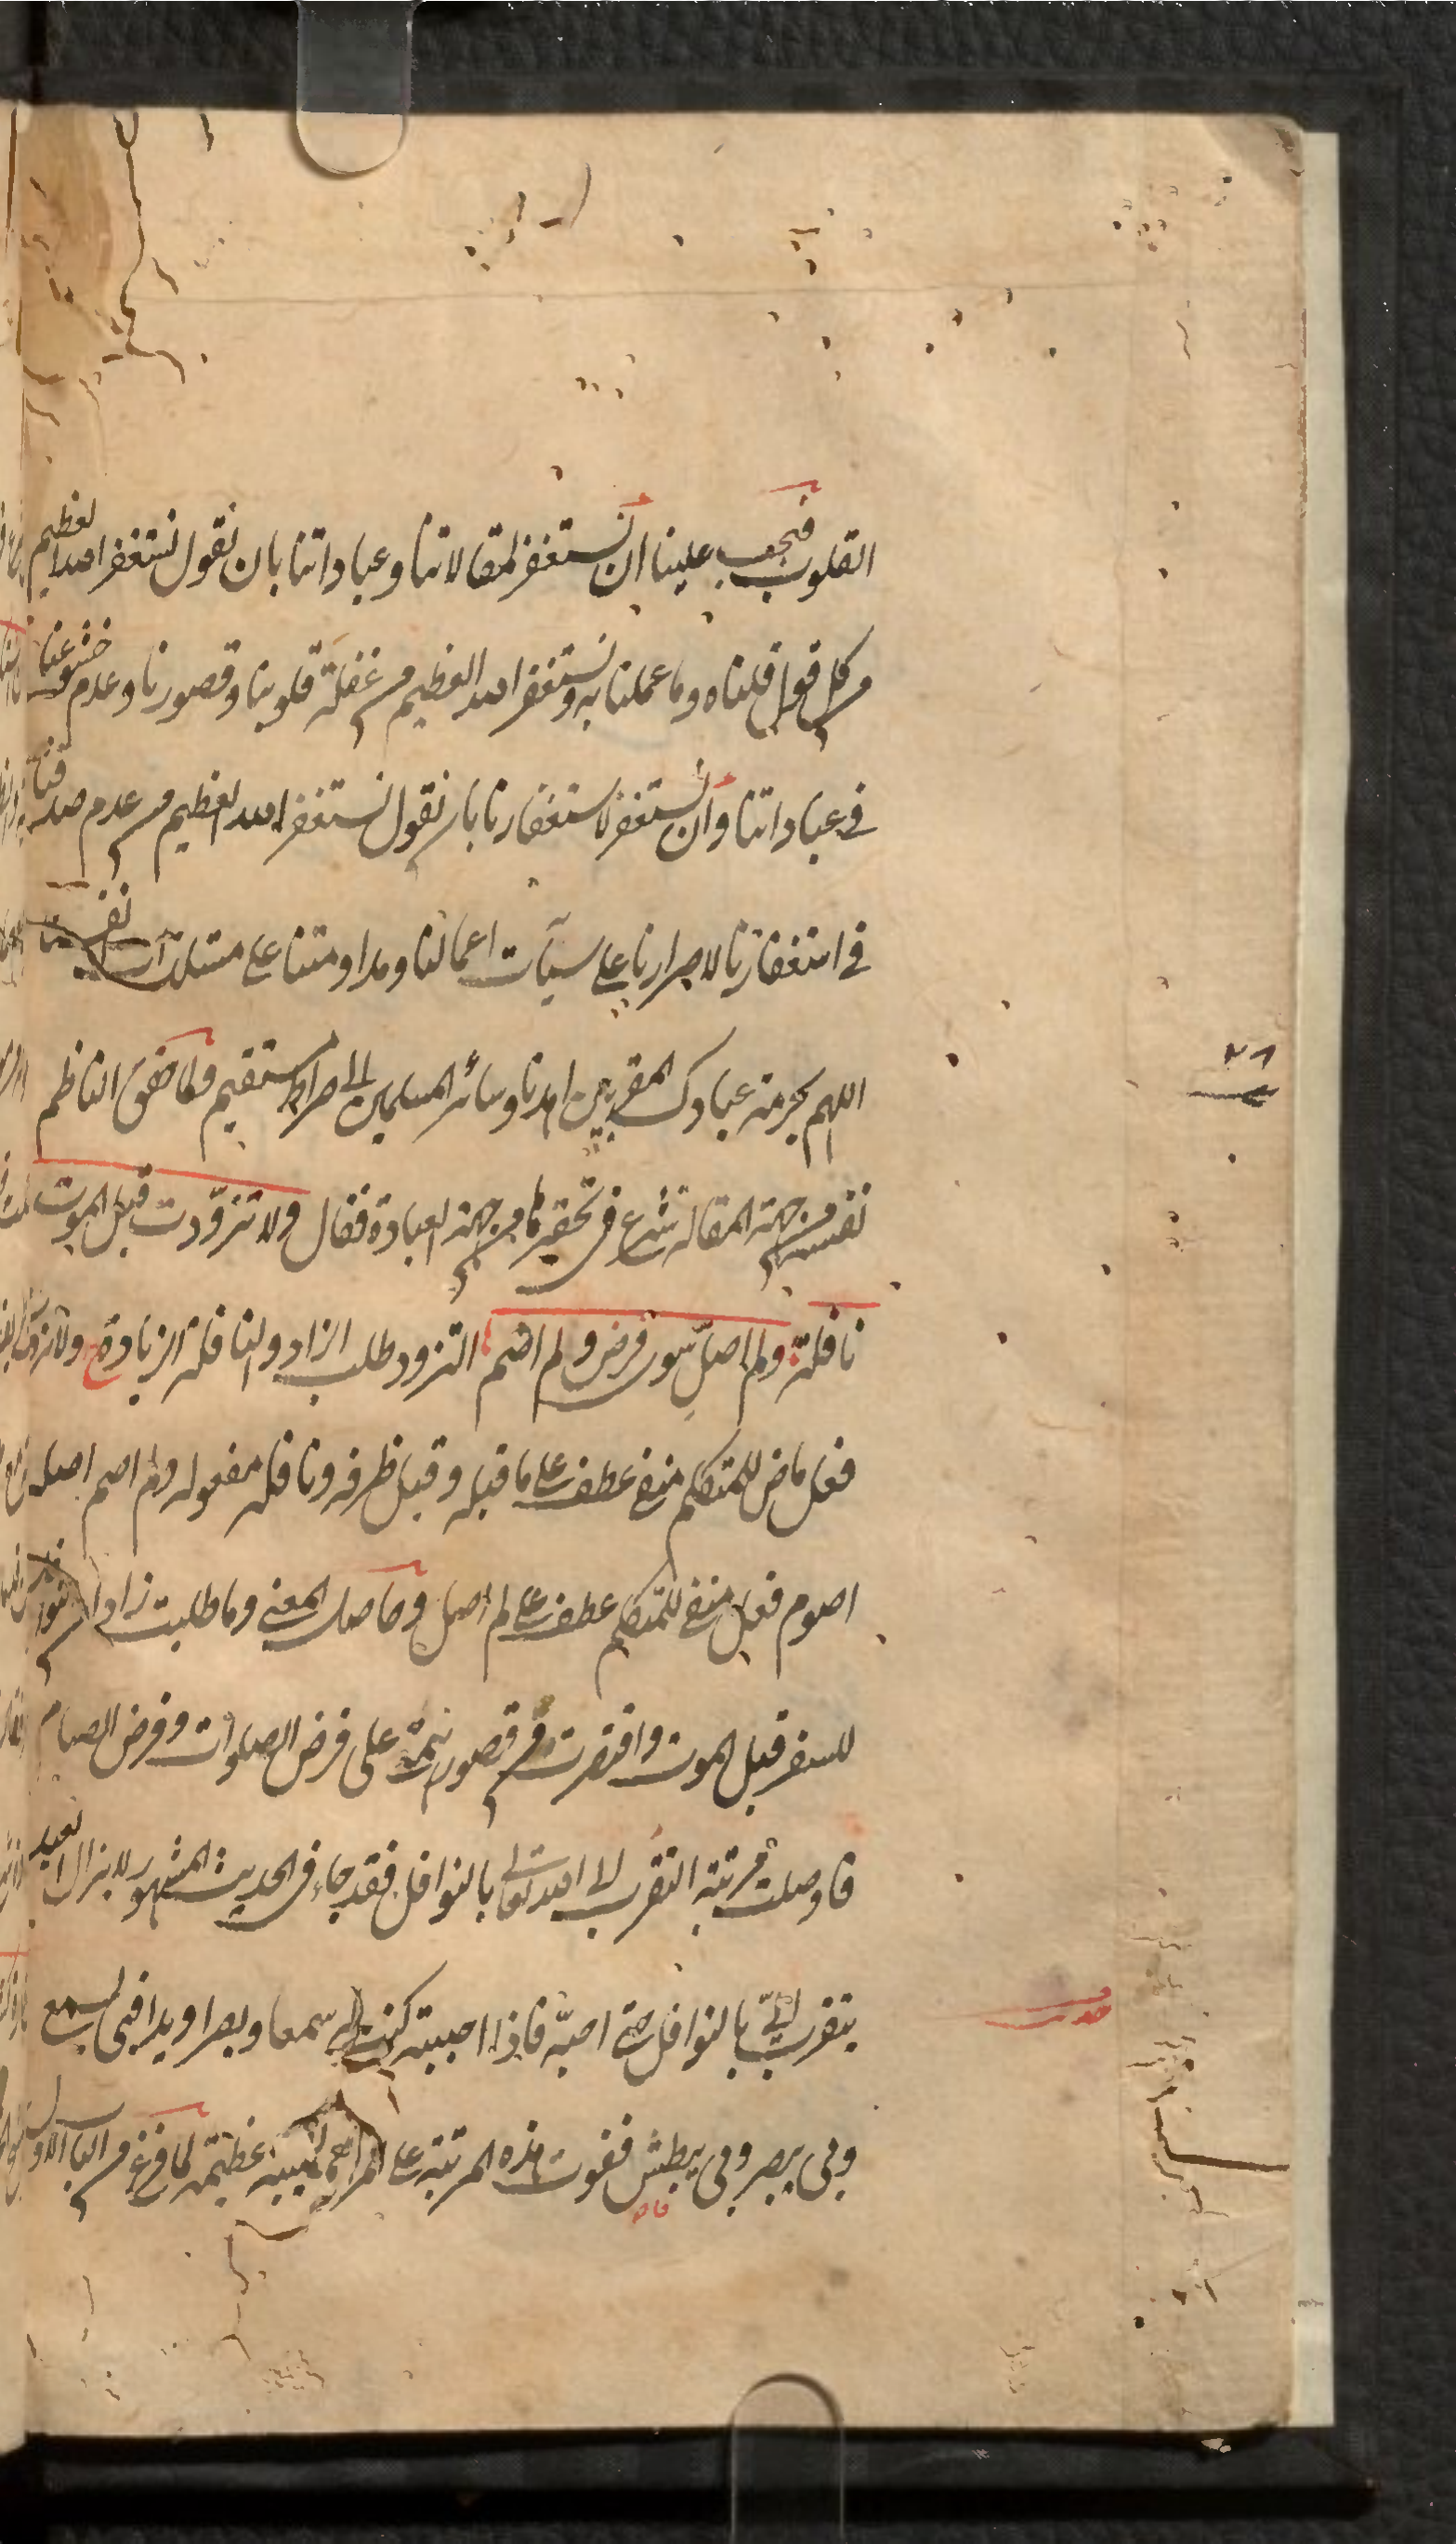 القلوب فيجب علينا ان نستغفر لمقالاتنا وعباداتنا بان نقول نستغفر الله العظيم
من كل قول قلناه وما عملنا به ونستغفر الله العظيم من غفلة قلوبنا وقصورنا وعدم خشوعنا
في عباداتنا وان نستغفر لاستغفارنا بان نقول نستغفر الله العظيم من عدم صدقنا
في استغفارنا لاصرارنا على سيآت اعمالنا ومداومتنا على مستلذات نفسنا
اللهم بحرمة عبادك المقربين اهدنا وسائر المسلمين الى صراط مستقيم ولما حقق الناظم
نفسه من جهة المقالة شرع في تحقيرها من جهة العبادة فقال ولا تزوّدت قبل الموت
نافلة ولم اصلّ سوى فرض ولم اصم التزود طلب الزاد والنافلة الزيادة ولا تزودت
فعل ماض للمتكلم منفى عطف على ما قبله وقبل ظرفه ونافلة مفعوله ولم اصم اصله
اصوم فعل منفى للمتكلم عطف على لم اصل وحاصل المعنى وما طلبت زادا
للسفر قبل الموت واقتصرت من قصور همتى على فرض الصلوات وفرض الصيام
فما وصلت مرتبة التقرب الى الله تعالى بالنوافل فقد جاء في الحديث المشهور لا يزال العبد
يتقرب إليّ بالنوافل حتى احبّه فاذا احببته كنت له سمعا وبصرا ويدا فبى يسمع
وبى يبصر وبى يبطش ففوت هذه المرتبة على المرء مصيبة عظيمة لما فرغ من الباب الاول
حديث